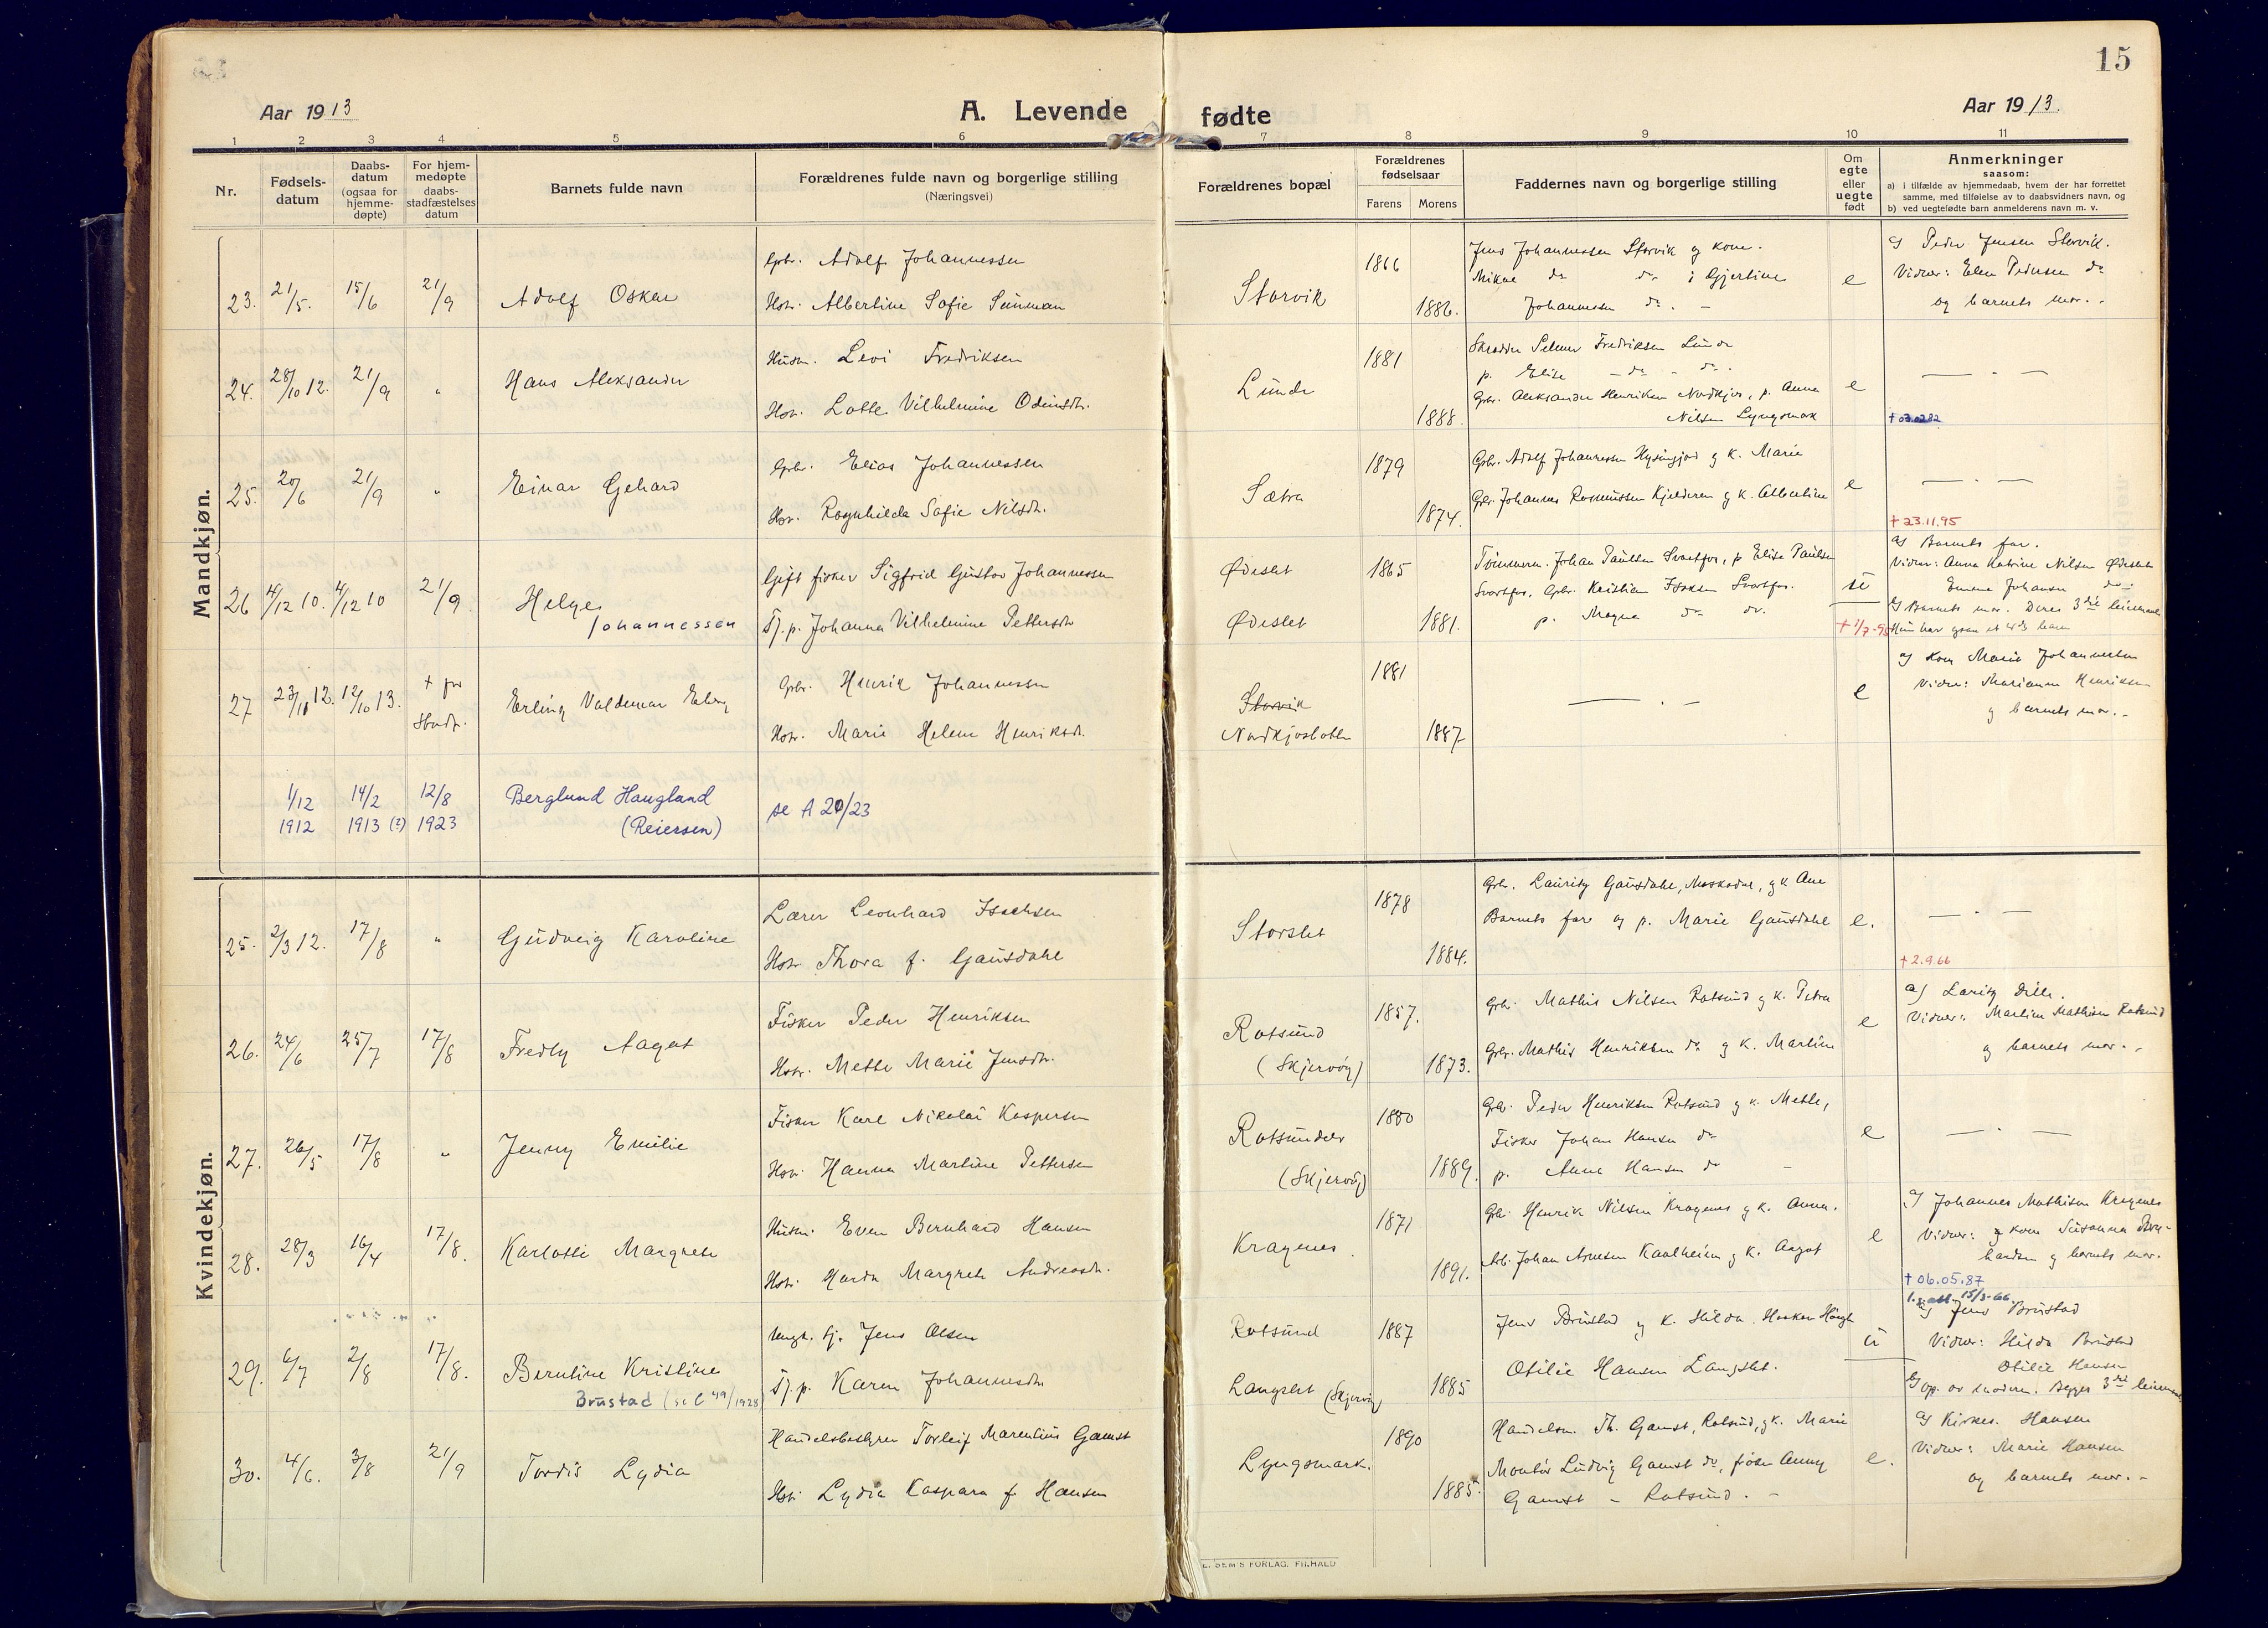 15
Aar 1913
A. Levende
fødte
Aar 1913.
1 2 3 4 5 6 7 8 9 10 11
Nr.
Fødsels-
datum
Daabs-
datum
(ogsaa for
hjemme-
døpte)
For hjem-
medøpte
daabs-
stadfæstelses
datum
Barnets fulde navn
Forældrenes fulde navn og borgerlige stilling
(Næringsvei)
Forældrenes bopæl
Forældrenes
fødselsaar
Farens Morens
Faddernes navn og borgerlige stilling
Om
egte
eller
uegte
født
Anmerkninger
saasom:
a) i tilfælde av hjemmedaab, hvem der har forrettet
samme, med tilføielse av to daabsvidners navn, og
b) ved uegtefødte barn anmelderens navn m. v.
Mandkjøn.
23. 21/5. 15/6 21/9 Adolf Oskar
Gbr. Adolf Johannessen
Hstr. Albertine Sofie Sunman
Storvik
1866
1886.
Jens Johannessen Storvik og kone.
Mikal do do i Gjertine
Johannessen do. -
e
a) Peder Jensen Storvik.
Vidner: Elen Pedersen do
og barnets mor. -
24. 28/10 12. 21/9 " Hans Aleksander
Husm. Levi Fredriksen
Hstr. Lotte Vilhelmine Odinsdtr.
Lunde
1881
1888.
Skrædder Selmer Fredriksen Lunde
p. Elise - do - do.
Gbr. Aleksander Henriksen Nordkjos, p. Anna
Nilsen Lyngsmark
e
— . —
25. 20/6 21/9 " Einar Gehard
Gbr. Elias Johannessen
Hstr. Ragnhilda Sofie Nilsdtr.
Sætra
1879
1874.
Gbr. Adolf Johannessen Hysingjord og k. Marie
Gbr. Johannes Rasmussen Kjelderen og k. Albertine
e
— . —
† 23.11.95
26 4/12 10. 4/12 10 21/9. Helge
Johannessen
Gift fisker Sigfrid Gustav Johannessen
Tj. p. Johanna Vilhelmine Pettersdtr
Ødeslet
Ødeslet
1865
1881.
Tømmerm. Johan Paulsen Svartfos, p Elise Paulsen
Svartfos, Gbr. Kristian Isaksen Svartfos.
p. Magna do do.
u
a) Barnets far.
Vidner: Anna Katrine Nilsen Ødeslet
Emma Johansen do
b) Barnets mor. Deres 3die leiermaal
27 23/11 12. 12/10 13. † før
Stadf.
Erling Valdemar Edvin
Gbr. Henrik Johannessen
Hstr. Marie Helene Henriksdtr.
Storvik
Nordkjosbotten
1881
1887
— . —
e
a) Kone Marie Johannessen
Vidner: Marianne Henriksen
og barnets mor. -
1/12 14/2 12/8 Berglund Haugland
1912 1913 (?) 1923 (Reiersen)
se A 20/23
Kvindekjøn.
25. 2/3 12. 17/8 " Gudveig Karoline
Lærer Leonhard Isachsen
Hstr Thora f. Gausdahl
Storslet
1878
1884.
Gbr. Lauritz Gausdahl, Moskodal, og k Ane
Barnets far og p. Marie Gausdahl
e.
— . —
† 2.9.66
26. 24/6 25/7 17/8 Fredly Aagot
Fisker Peder Henriksen
Hstr. Mette Marie Jensdtr.
Rotsund
(Skjervøy)
1857.
1873.
Gbr. Mathis Nilsen Rotsund og k. Petra
Gbr. Mathis Henriksen do og k. Martine
e
a) Laritz Dille.
Vidner: Martine Mathisen Rotsund
og barnets mor. -
27. 26/5 17/8 " Jenny Emilie
Fisker Karl Nikolai Kaspersen
Hstr. Hanna Martine Pettersen
Rotsundelv
(Skjervøy)
1880
1889.
Gbr. Peder Henriksen Rotsund og k. Mette,
Fisker Johan Hansen do
p. Anna Hansen do -
e
— . —
28. 28/3 16/4 17/8. Karlotte Margrete
Husm. Even Bernhard Hansen
Hstr. Harda Margrete Andreasdtr.
Kragenes.
1871
1891.
Gbr. Henrik Nilsen Kragenes og k. Anna.
Arb. Johan Arnesen Kaalheim og k. Aagot
e
a) Johannes Mathisen Kragenes
Vidner: og kone Susanna Bern-
hardsen og barnets mor.
† 06.05.87
29. 6/7 2/8 17/8. Berntine Kristine
Brustad (se C 49/1928)
Ungk. fj. Jens Olsen
Tj. p. Karen Johannesdtr
Rotsund
Langslet (Skjervøy)
1887
1885
Jens Brustad og k. Hilda. Haakon Høegh
Otilie Hansen Langslet.
u
1. g. att. 15/3-66
a) Jens Brustad
Vidner: Hilda Brustad
Otilie Hansen
b) Op. av moderen. Begges 3die leiermaal
30. 4/6. 3/8 21/9 Tordis Lydia
Handelsbestyrer Torleif Marentius Gamst
Hstr. Lydia Kaspara f. Hansen
Lyngsmark.
1890
1885.
Handelsm. Th. Gamst, Rotsund, og k. Marie
Montør Ludvig Gamst do, frøken Anny
Gamst - Rotsund. -
e.
a) Kirkes. Hansen
Vidner: Marie Hansen
og barnets mor. -